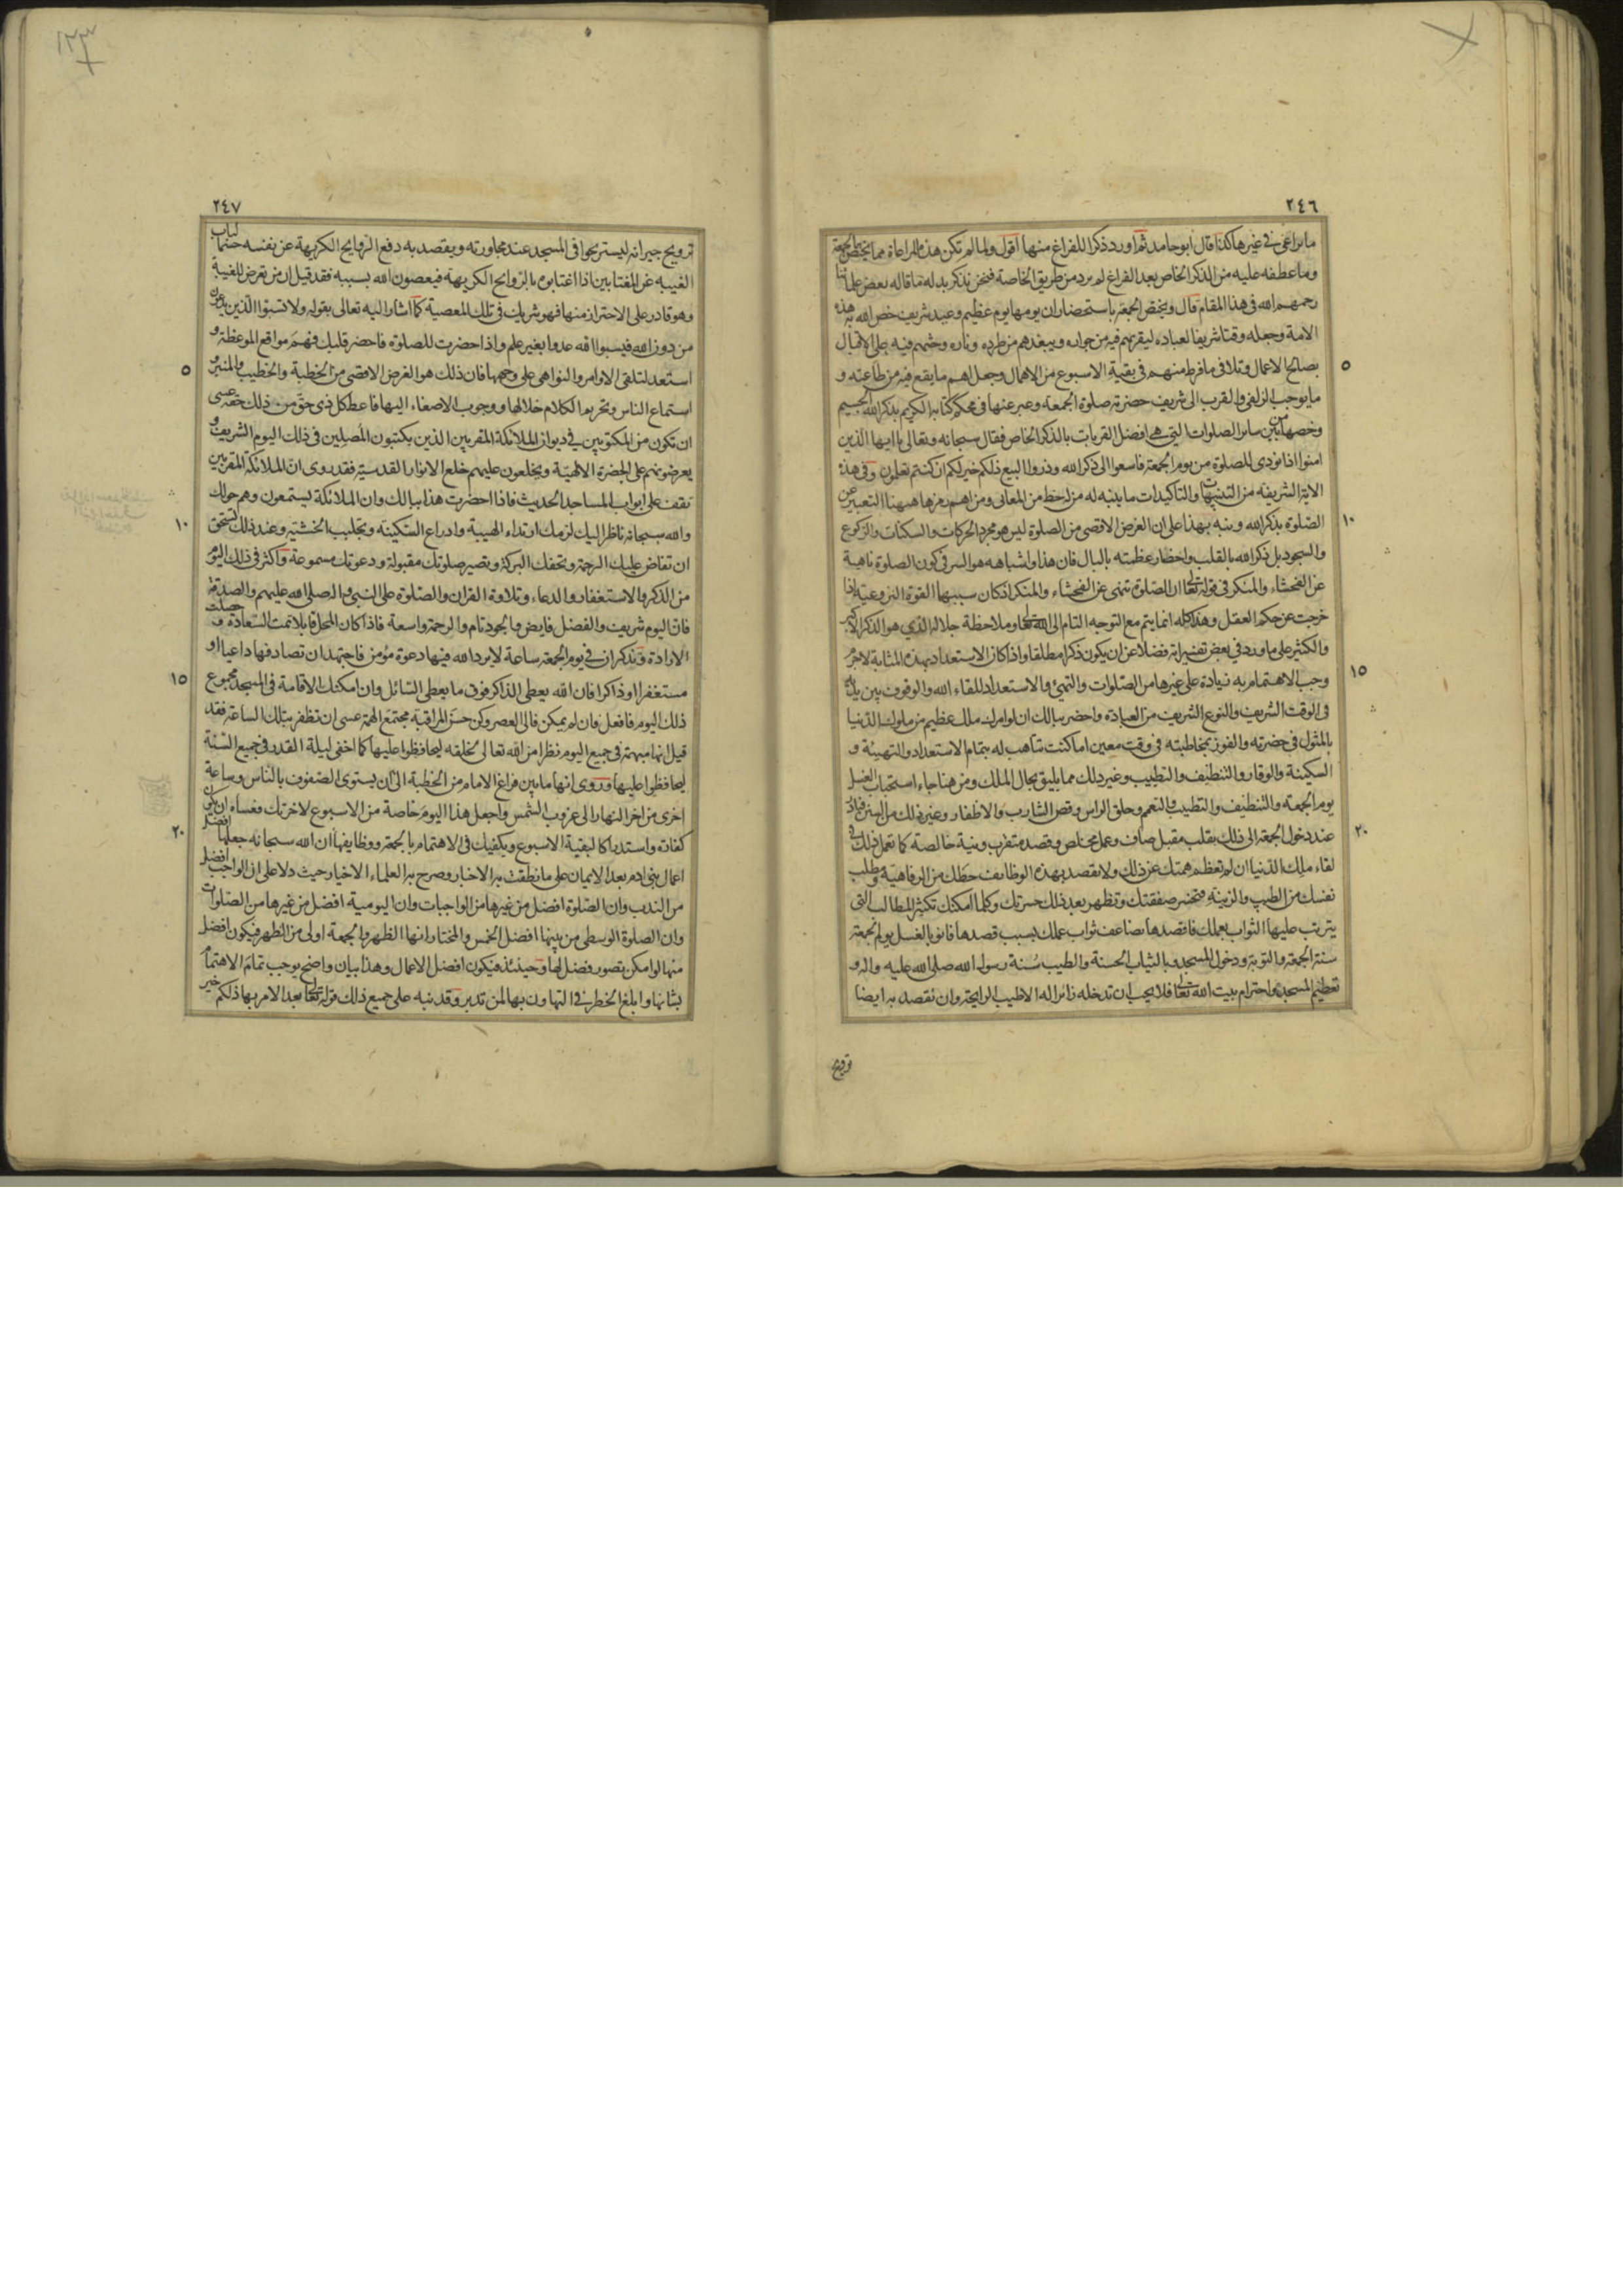 ٢٤٦
ما يراعى في غيرها كذا قال ابو حامد ثم اورد ذكرا للفراغ منها اقول ولما لم تكن هذه المراعاة مما يختص بالجمعة
وما عطفه عليه من الذكر الخاص بعد الفراغ لم يرد من طريق الخاصة فنحن نذكر بدله ما قاله بعض علمائنا
رحمهم الله في هذا المقام قال ويختص الجمعة باستحضار ان يومها يوم عظيم وعيد شريف خص الله به هذه
الامة وجعله وقتا شريفا لعباده ليقربهم فيه من جواره ويبعدهم من طرده وناره وحثهم فيه على الاقبال
٥
بصالح الاعمال وتلافى ما فرط منهم في بقية الاسبوع من الاهمال وجعل اهم ما يقع فيه من طاعته و
ما يوجب الزلفى والقرب الى شريف حضرته صلوة الجمعة وعبر عنها في محكم كتابه الكريم بذكر الله الجسيم
وخصها من بين ساير الصلوات التي هي افضل القربات بالذكر الخاص فقال سبحانه وتعالى يا ايها الذين
امنوا اذا نودى للصلوة من يوم الجمعة فاسعوا الى ذكر الله وذروا البيع ذلكم خير لكم ان كنتم تعلمون وفي هذه
الاية الشريفة من التنبيهات والتاكيدات ما يتنبه له من له حظ من المعانى ومن اهم رمزها ههنا التعبير عن
١٠
الصلوة بذكر الله وبنه بهذا على ان الغرض الاقصى من الصلوة ليس هو مجرد الحركات والسكنات والركوع
والسجود بل ذكر الله بالقلب واحضار عظمته بالبال فان هذا واشباهه هو السر في كون الصلوة ناهية
عن الفحشاء والمنكر في قوله تعالى ان الصلوة تنهى عن الفحشاء والمنكر اذ كان سببها القوة النزوعية اذا
خرجت عن حكم العقل وهذا كله انما يتم مع التوجه التام الى الله تعالى وملاحظة جلاله الذي هو الذكر الاكبر
والكثير على ما ورد في بعض تفسيراته فضلا عن ان يكون ذكرا مطلقا واذا كان الاستعداد بهذه المثابة لاجرم
١٥
وجب الاهتمام به زيادة على غيرها من الصلوات والتهيئ والاستعداد للقاء الله والوقوف بين يديه
في الوقت الشريف والنوع الشريف من العبادة واحضر ببالك ان لو امرك ملك عظيم من ملوك الدنيا
بالمثول في حضرته والفوز بمخاطبته في وقت معين اما كنت تتاهب له بتمام الاستعداد والتهيئة و
السكينة والوقار والتنظيف والتطييب وغير ذلك مما يليق بحال الملك ومن هنا جاء استحباب الغسل
يوم الجمعة والتنظيف والتطيب والتعمم وحلق الراس وقص الشارب والاظفار وغير ذلك من السنن فبادر
٢٠
عند دخول الجمعة الى ذلك بقلب مقبل صاف وعمل مخلص وقصد متقرب ونية خالصة كما تعمل ذلك في
لقاء ملك الدنيا ان لم تعظم همتك عن ذلك ولا تقصد بهذه الوظائف حظك من الرفاهية ومطلب
نفسك من الطيب والزينة فتخسر صفقتك وتظهر بعد ذلك حسرتك وكلما امكنك تكثير المطالب التي
يترتب عليها الثواب بعملك فاقصدها يضاعف ثواب عملك بسبب قصدها فانو بالغسل يوم الجمعة
سنة الجمعة والتوبة ودخول المسجد وبالثياب الحسنة والطيب سنة رسول الله صلى الله عليه واله و
تعظيم المسجد واحترام بيت الله تعالى فلا يحب ان تدخله زائرا له الا طيب الرايحة وان تقصد به ايضا
ترويح
١٢٣
٢٤٧
ترويح جيرانه ليستريحوا في المسجد عند مجاورته ويقصد به دفع الروايح الكريهة عن نفسه حسما لباب
الغيبة عن المغتابين اذا اغتابوه بالروايح الكريهة فيعصون الله بسببه فقد قيل ان من تعرض للغيبة
وهو قادر على الاحتراز منها فهو شريك في تلك المعصية كما اشار اليه تعالى بقوله ولا تسبوا الذين يدعون
من دون الله فيسبوا الله عدوا بغير علم واذا حضرت للصلوة فاحضر قلبك فهم مواقع الموعظة و
٥
استعد لتلقى الاوامر والنواهي على وجهها فان ذلك هو الغرض الاقصى من الخطبة والخطيب والمنبر و
استماع الناس وتحريم الكلام خلالها ووجوب الاصغاء اليها فاعط كل ذى حق من ذلك حقه عسى
ان تكون من المكتوبين في ديوان الملائكة المقربين الذين يكتبون المصلين في ذلك اليوم الشريف و
يعرضونهم على الحضرة الالهية ويخلعون عليهم خلع الانوار القدسية فقد روى ان الملائكة المقربين
تقف على ابواب المساجد الحديث فاذا احضرت هذا ببالك وان الملائكة يستمعون وهم حولك
١٠
والله سبحانه ناظر اليك لزمك ارتداء الهيبة وادراع السكينة وتجلبب الخشية وعند ذلك تستحق
ان تفاض عليك الرحمة وتحفك البركة وتصير صلوتك مقبولة ودعوتك مسموعة واكثر في ذلك اليوم
من الذكر والاستغفار والدعاء وتلاوة القران والصلوة على النبي واله صلى الله عليهم والصدقة
فان اليوم شريف والفضل فايض والجود تام والرحمة واسعة فاذا كان المحل قابلا تمت السعادة وحصلت
الارادة وتذكر ان في يوم الجمعة ساعة لا يرد الله فيها دعوة مؤمن فاجتهد ان تصادفها داعيا او
١٥
مستغفرا او ذاكرا فان الله يعطى الذاكر فوق ما يعطى السائل وان امكنك الاقامة في المسجد مجموع
ذلك اليوم فافعل فان لم يمكن فالى العصر وكن حسن المراقبة مجتمع الهمة عسى ان تظفر بتلك الساعة فقد
قيل انها مبهمة في جميع اليوم نظرا من الله تعالى لخلقه ليحافظوا عليها كما اخفى ليلة القدر في جميع السنة
ليحافظوا عليها وروى انها ما بين فراغ الامام من الخطبة الى ان يستوى الصفوف بالناس وساعة
اخرى من اخر النهار الى غروب الشمس واجعل هذا اليوم خاصة من الاسبوع لاخرتك فعساه ان يكون
٢٠
كفارة واستدراكا لبقية الاسبوع ويكفيك في الاهتمام بالجمعة ووظايفها ان الله سبحانه جعلها افضل
اعمال بني ادم بعد الايمان على ما نطقت به الاخبار وصرح به العلماء الاخيار حيث دلا على ان الواجب افضل
من الندب وان الصلوة افضل من غيرها من الواجبات وان اليومية افضل من غيرها من الصلوات
وان الصلوة الوسطى من بينها افضل الخمس والمختار انها الظهر والجمعة اولى من الظهر فيكون افضل
منها لو امكن تصور فضل لها وحينئذ فيكون افضل الاعمال وهذا بيان واضح يوجب تمام الاهتمام
بشانها وابلغ الخطر في التهاون بها لمن تدبر وقد نبه على جميع ذلك قوله تعالى بعد الامر بها ذلكم خير